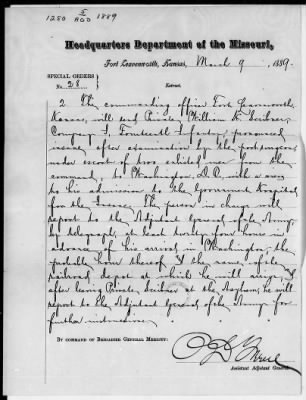 1280 S/AGO 1889
Headquarters Department of the Missouri,
Fort Leavenworth, Kansas, March 9, 1889.
SPECIAL ORDERS
No. 28
Extract.
2. The commanding officer Fort Leavenworth,
Kansas, will send Private William H.
Company I, Fourteenth Infantry, pronounced
insane, after examination by the post surgeon,
under escort of two enlisted men from his
command, to Washington, D.C. with a view
to his admission to the Government Hospital
for the Insane. The person in charge will
report to the Adjutant General of the Army
by telegraph, at least twenty four hours in
advance of his arrival in Washington, the
probable hour thereof & the name of the
railroad depot at which he will arrive, &
after leaving Private at the Asylum, he will
report to the Adjutant General of the Army for
further instructions.
BY COMMAND OF BRIGADIER GENERAL MERRITT:
Assistant Adjutant General.